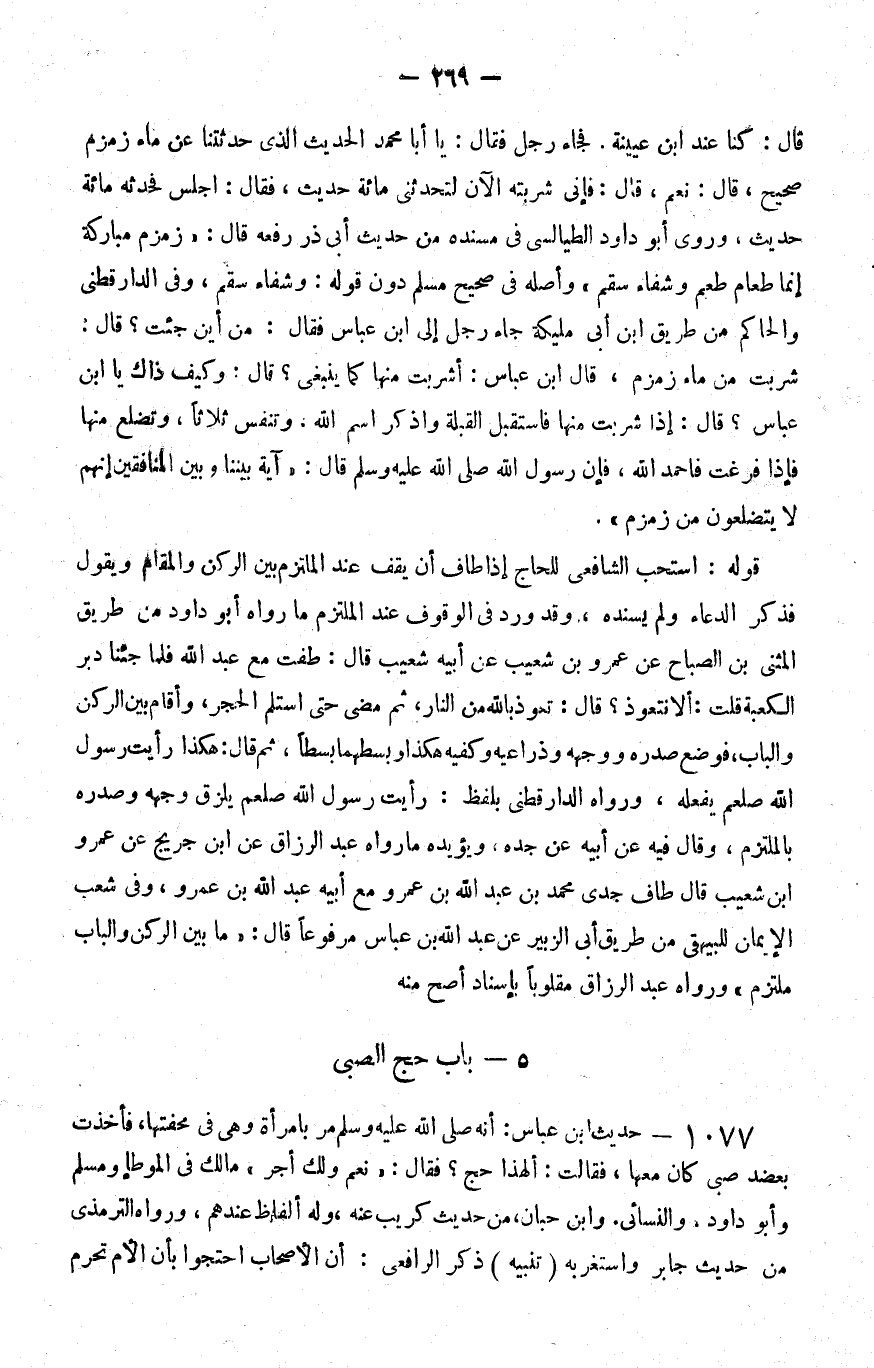 — ٢٦٩ —
قال : كنا عند ابن عيينة . فجاء رجل فقال : يا أبا محمد الحديث الذى حدثتنا عن ماء زمزم
صحيح ، قال : نعم ، قال : فإنى شربته الآن لتحدثنى مائة حديث ، فقال : اجلس فحدثه مائة
حديث ، وروى أبو داود الطيالسى فى مسنده من حديث أبى ذر رفعه قال : « زمزم مباركة
إنما طعام طعم وشفاء سقم » وأصله فى صحيح مسلم دون قوله : وشفاء سقم ، وفى الدارقطنى
والحاكم من طريق ابن أبى مليكة جاء رجل إلى ابن عباس فقال : من أين جئت ؟ قال :
شربت من ماء زمزم ، قال ابن عباس : أشربت منها كما ينبغى ؟ قال : وكيف ذاك يا ابن
عباس ؟ قال : إذا شربت منها فاستقبل القبلة واذكر اسم الله ، وتنفس ثلاثاً ، وتضلع منها
فإذا فرغت فاحمد الله ، فإن رسول الله صلى الله عليه وسلم قال : « آية بيننا وبين المنافقين إنهم
لا يتضلعون من زمزم » .
قوله : استحب الشافعى للحاج إذا طاف أن يقف عند الملتزم بين الركن والمقام ويقول
فذكر الدعاء ولم يسنده ، وقد ورد فى الوقوف عند الملتزم ما رواه أبو داود من طريق
المثنى بن الصباح عن عمرو بن شعيب عن أبيه شعيب قال : طفت مع عبد الله فلما جئنا دبر
الكعبة قلت : ألا نتعوذ ؟ قال : نعوذ بالله من النار، ثم مضى حتى استلم الحجر، وأقام بين الركن
والباب، فوضع صدره ووجهه وذراعيه وكفيه هكذا وبسطهما بسطاً ، ثم قال : هكذا رأيت رسول
الله صلعم يفعله ، ورواه الدارقطنى بلفظ : رأيت رسول الله صلعم يلزق وجهه وصدره
بالملتزم ، وقال فيه عن أبيه عن جده ، ويؤيده ما رواه عبد الرزاق عن ابن جريج عن عمرو
ابن شعيب قال طاف جدى محمد بن عبد الله بن عمرو مع أبيه عبد الله بن عمرو ، وفى شعب
الإيمان للبيهقى من طريق أبى الزبير عن عبد الله بن عباس مرفوعاً قال : « ما بين الركن والباب
ملتزم » ورواه عبد الرزاق مقلوباً بإسناد أصح منه
٥ — باب حج الصبى
١٠٧٧ — حديث ابن عباس : أنه صلى الله عليه وسلم مر بامرأة وهى فى محفتها، فأخذت
بعضد صبى كان معها ، فقالت : ألهذا حج ؟ فقال : « نعم ولك أجر » مالك فى الموطإ ومسلم
وأبو داود ، والنسائى. وابن حبان، من حديث كريب عنه ، وله ألفاظ عندهم ، ورواه الترمذى
من حديث جابر واستغربه ( تنبيه ) ذكر الرافعى : أن الأصحاب احتجوا بأن الأم تحرم